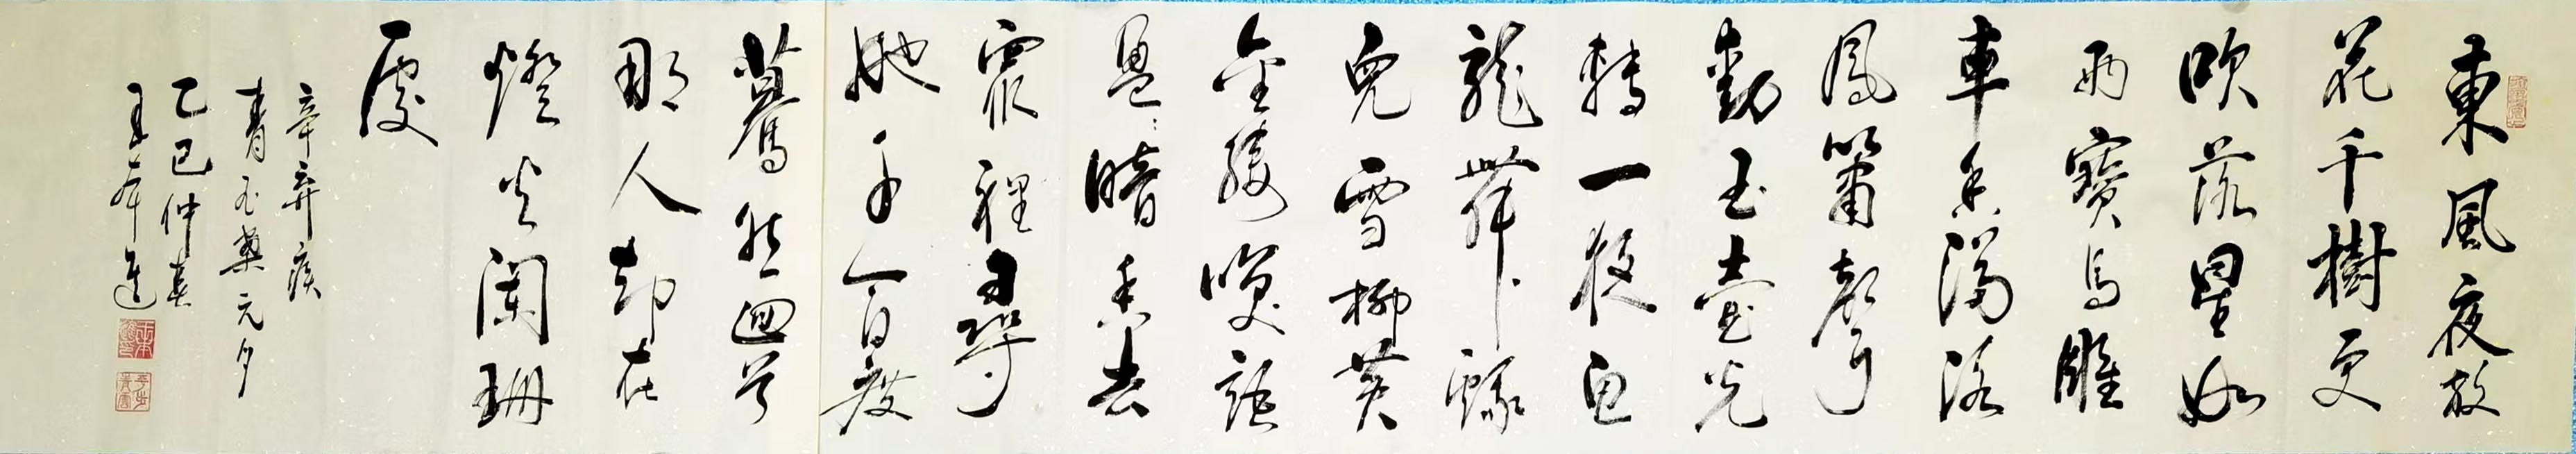 東風夜放
花千樹更
吹落星如
雨寶馬雕
車香滿路
鳳簫聲
動玉壺光
轉一夜魚
龍舞蛾
兒雪柳黃
金縷笑語
盈盈暗香去
眾裡尋
她千百度
驀然迴首
那人却在
燈火闌珊
處
辛弃疾
青玉案元夕
乙巳仲春
王